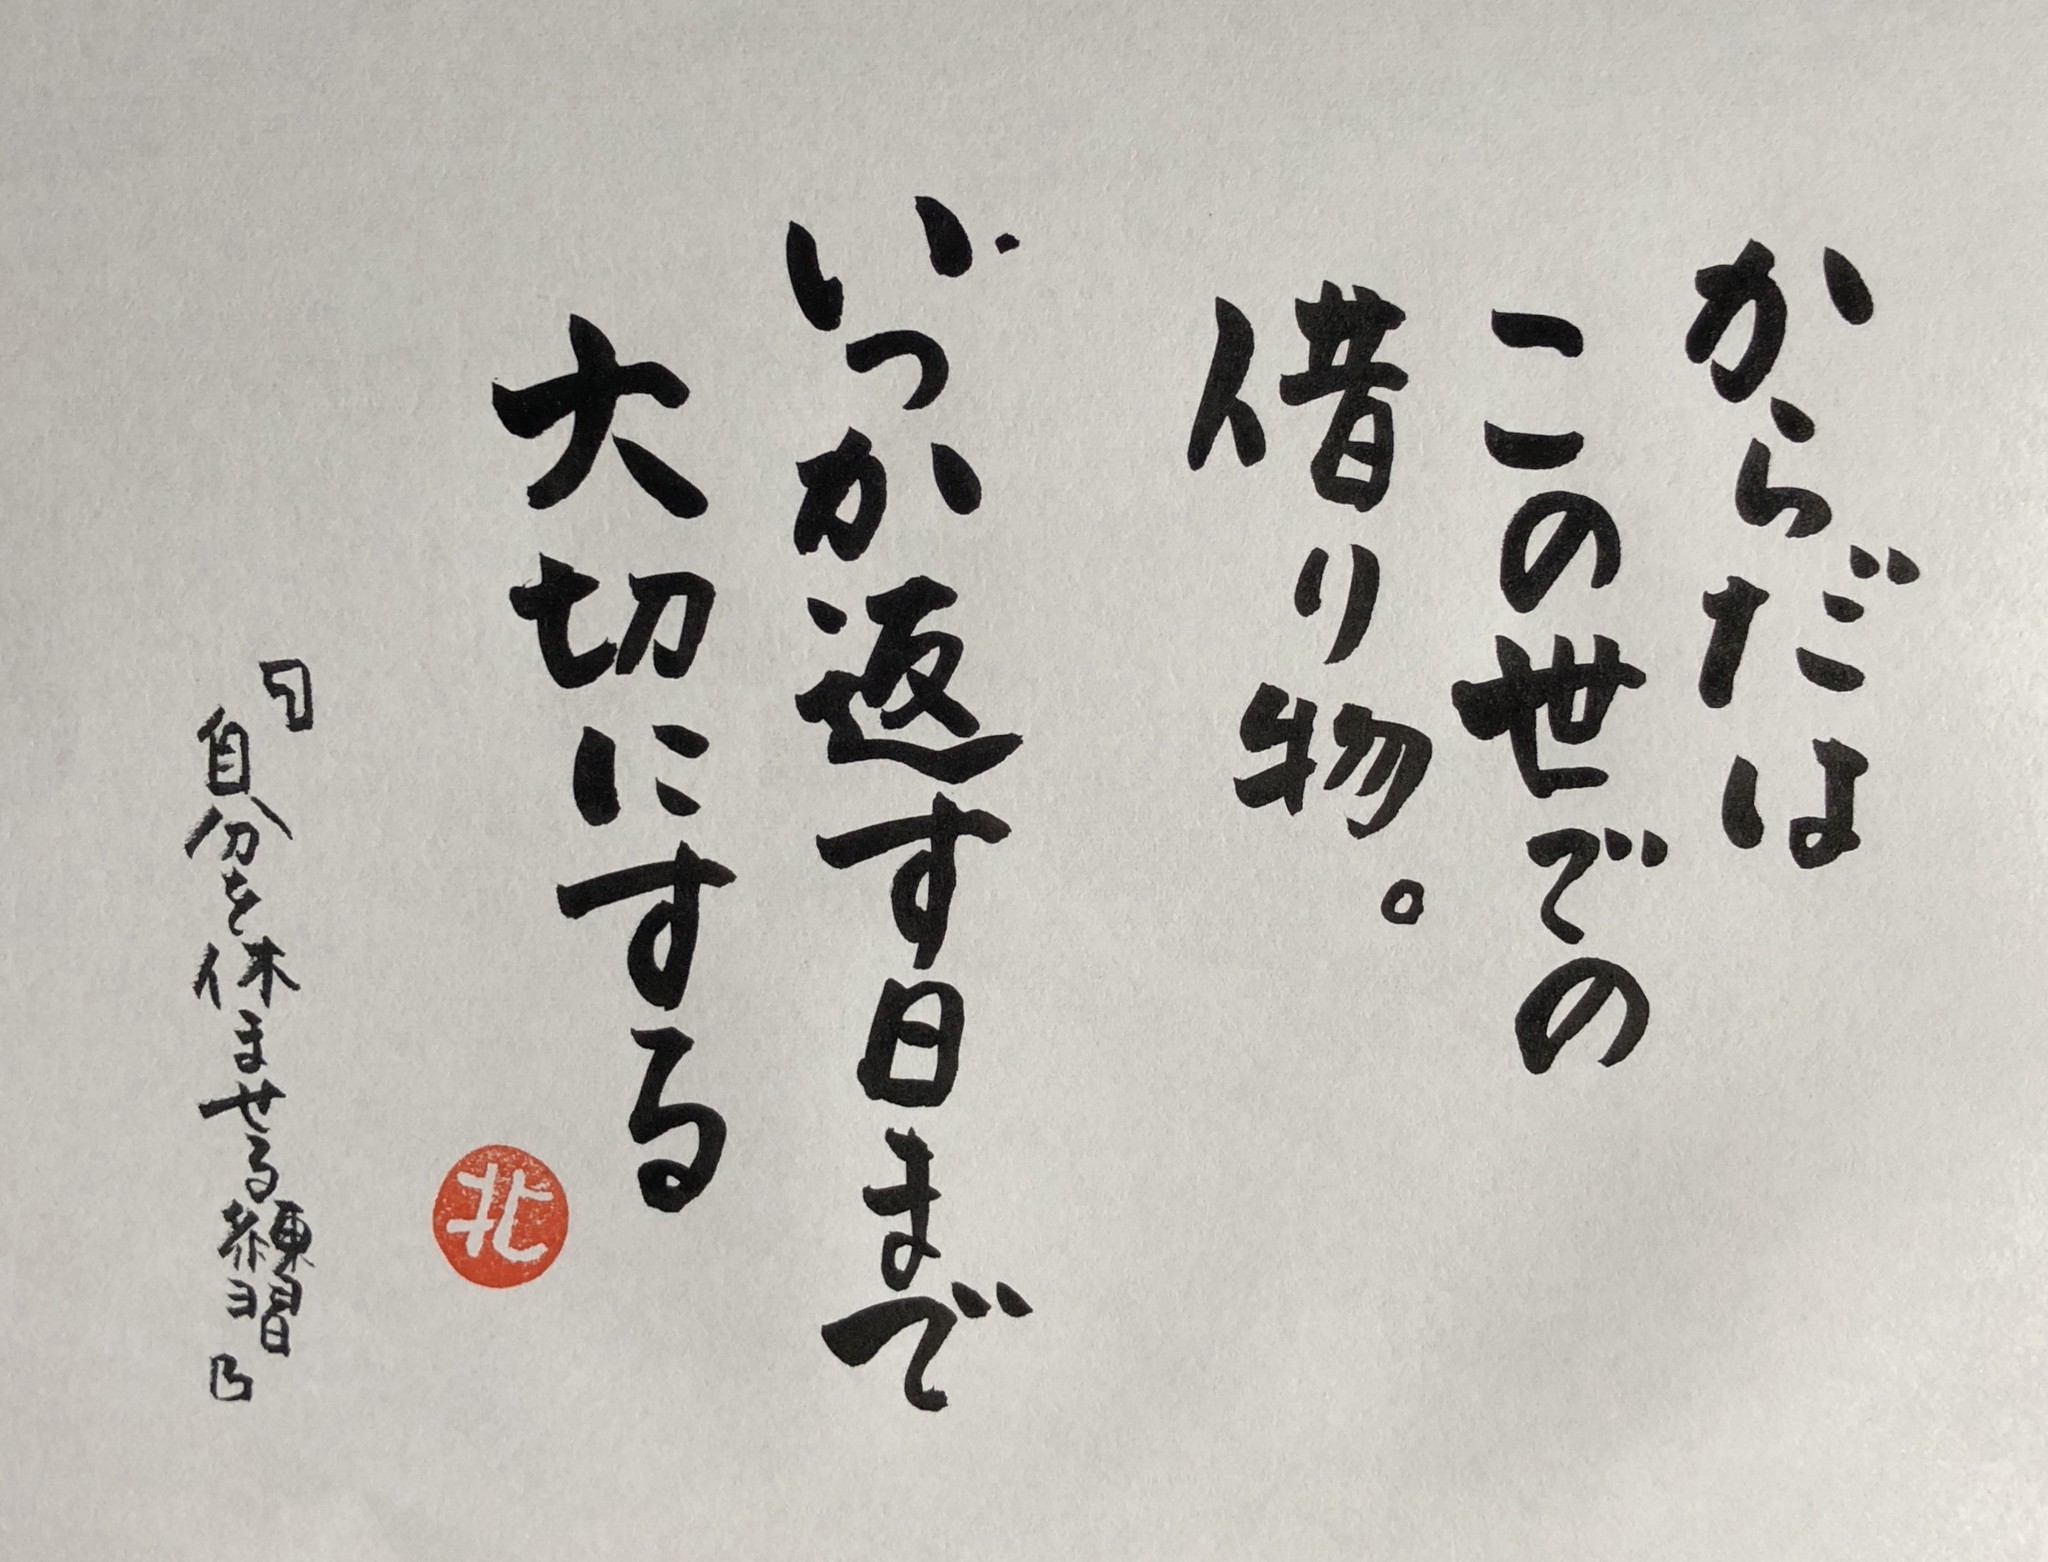 からだは
この世での
借り物。
いつか返す日まで
大切にする
北
『自分を休ませる練習』